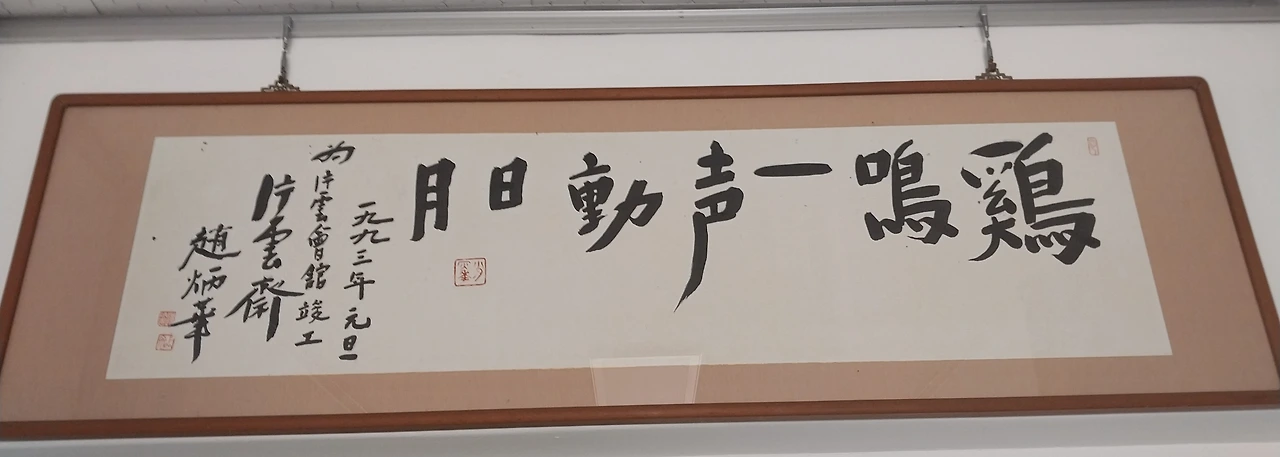 鷄鳴一声動日月
一九九三年元旦
为片雲會舘竣工
片雲齋
趙炳華